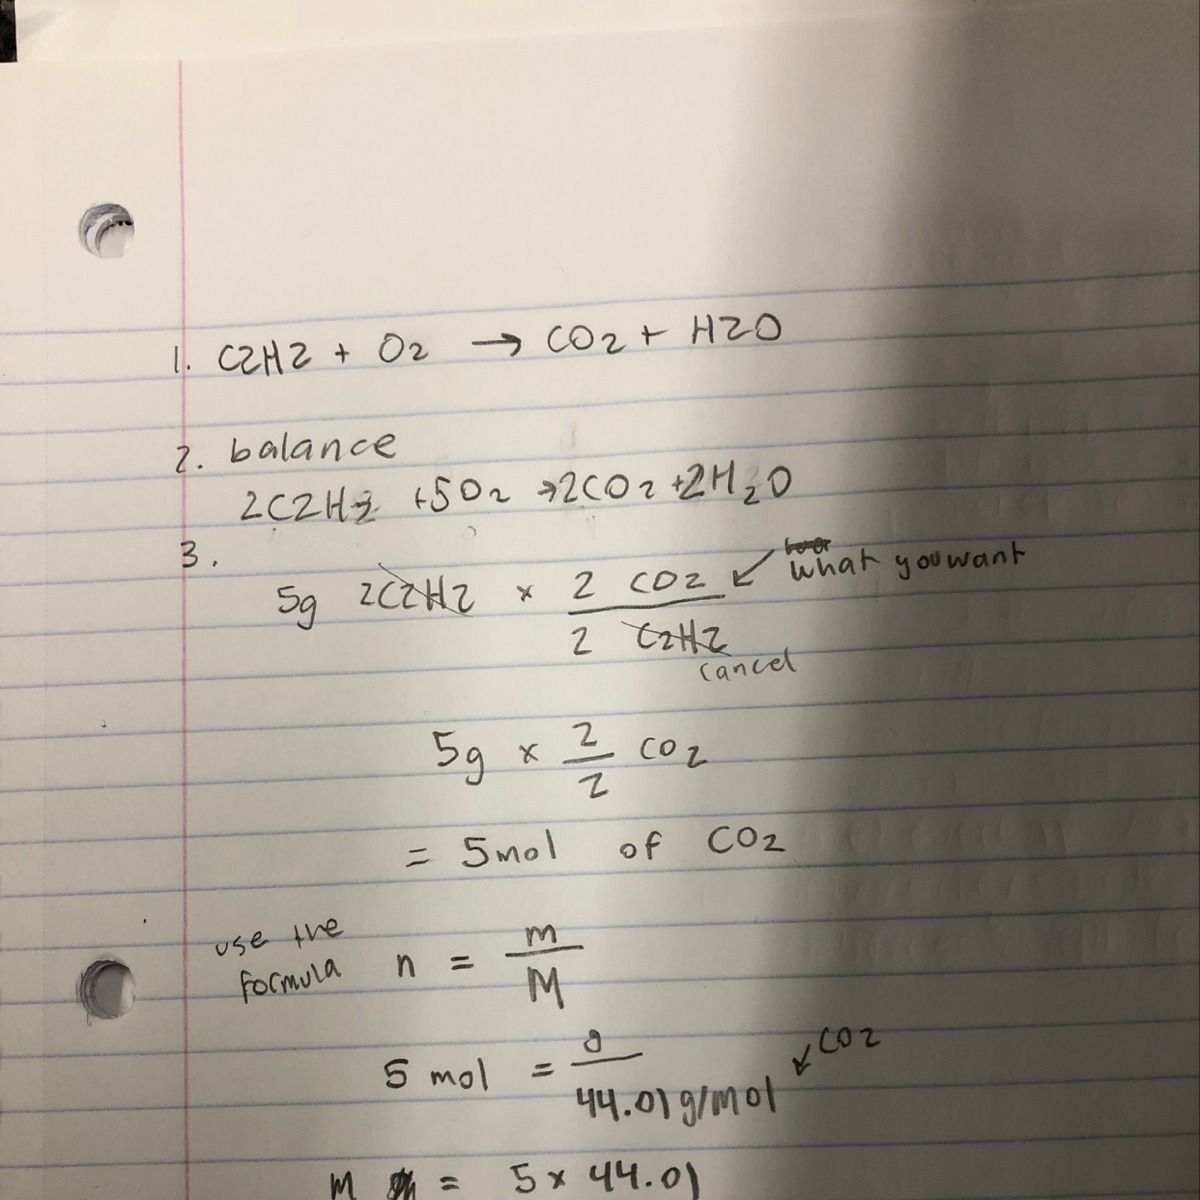 1. C2H2 + O2 → CO2 + H2O
2. balance
2C2H2 +5O2 →2CO2 +2H2O
3.
5g 2C2H2 × 2 CO2 ↙ what you want
2 C2H2
cancel
5g × 2/2 CO2
= 5mol of CO2
use the
formula n = m/M
5 mol = g/44.01g/mol ↙ CO2
m = 5 × 44.01